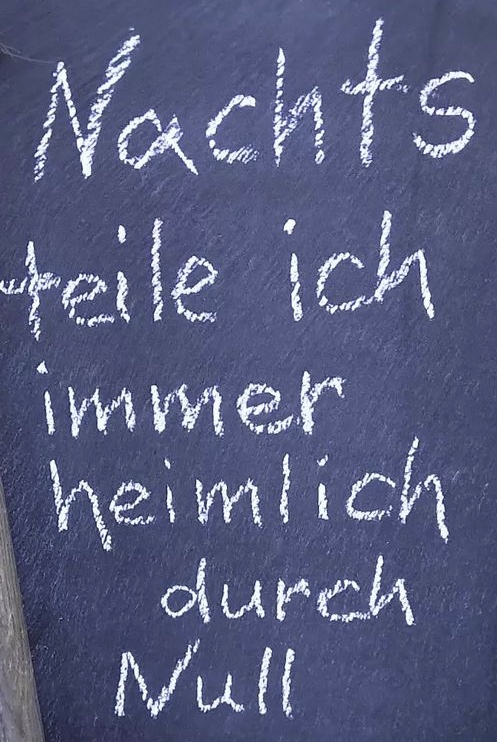 Nachts
teile ich
immer
heimlich
durch
Null